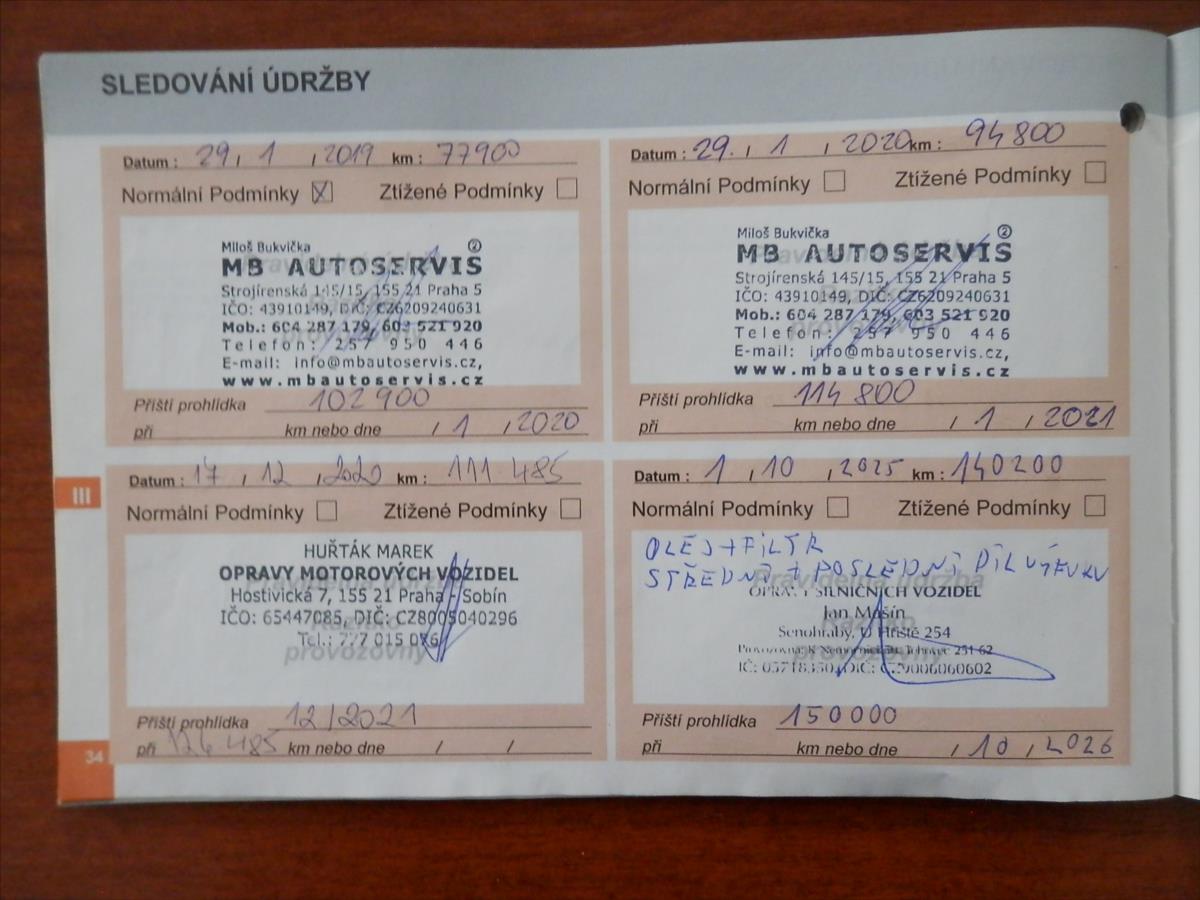 SLEDOVÁNÍ ÚDRŽBY
Datum : 29 , 1 , 2019 km : 77900
Normální Podmínky ☒ Ztížené Podmínky ☐
Miloš Bukvička ②
MB AUTOSERVIS
Strojírenská 145/15, 155 21 Praha 5
IČO: 43910149, DIČ: CZ6209240631
Mob.: 604 287 179, 603 521 920
Telefon: 257 950 446
E-mail: info@mbautoservis.cz,
www.mbautoservis.cz
Příští prohlídka 102 900
při km nebo dne / 1 , 2020
Datum : 29. , 1 , 2020 km : 94800
Normální Podmínky ☐ Ztížené Podmínky ☐
Miloš Bukvička ②
MB AUTOSERVIS
Strojírenská 145/15, 155 21 Praha 5
IČO: 43910149, DIČ: CZ6209240631
Mob.: 604 287 179, 603 521 920
Telefon: 257 950 446
E-mail: info@mbautoservis.cz,
www.mbautoservis.cz
Příští prohlídka 114 800
při km nebo dne / 1 , 2021
Datum : 17 , 12 , 2020 km : 111 485
Normální Podmínky ☐ Ztížené Podmínky ☐
HUŘŤÁK MAREK
OPRAVY MOTOROVÝCH VOZIDEL
Hostivická 7, 155 21 Praha - Sobín
IČO: 65447085, DIČ: CZ8005040296
Tel.: 777 015 076
provozovny
Příští prohlídka 12/2021
při 126 485 km nebo dne / /
Datum : 1 , 10 , 2025 km : 140200
Normální Podmínky ☐ Ztížené Podmínky ☐
OLEJ + FILTR
STŘEDNÍ + POSLEDNÍ DÍL VÝFUKU
Pravidelná údržba
OPRAVY SILNIČNÍCH VOZIDEL
Jan Mašín
Razítko
Senohraby, U Hřiště 254
provozovny
Příští prohlídka 150000
při km nebo dne / 10 , 2026
III
34